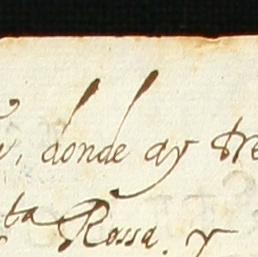 , donde ay tre
ta Rossa, y